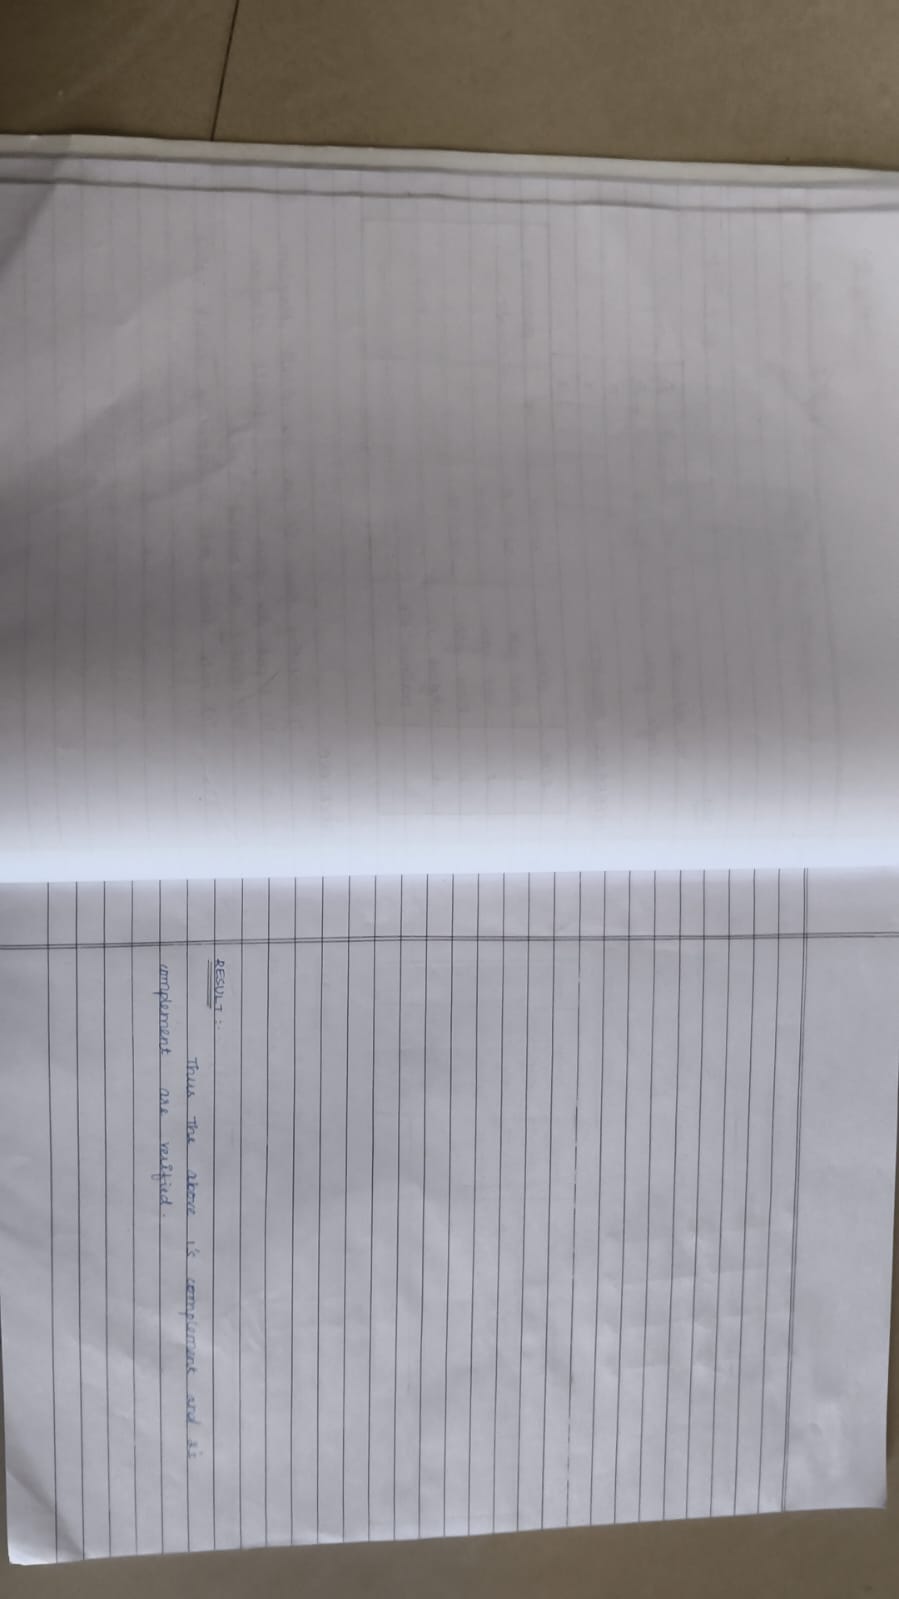 RESULT :-
Thus the above 1's complement and 2's
complement are verified.